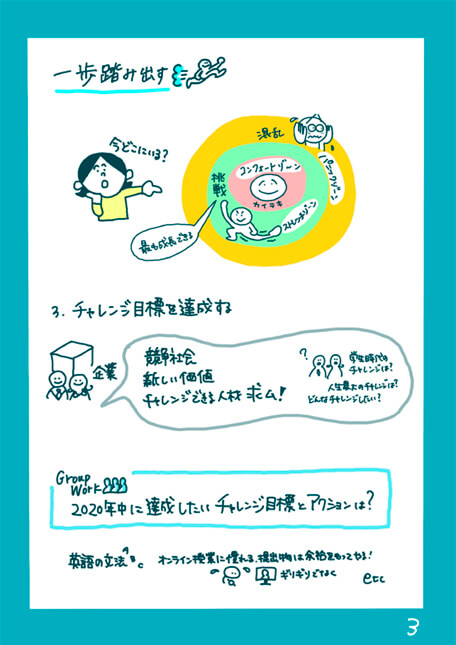 一歩踏み出す
今どこにいる?
混乱
パニックゾーン
コンフォートゾーン
カイテキ
挑戦
ストレッチゾーン
最も成長できる
3. チャレンジ目標を達成する
企業
競争社会
新しい価値
チャレンジできる人材 求ム!
?
学生時代の
チャレンジは?
人生最大のチャレンジは?
どんなチャレンジしたい?
Group
Work
2020年中に達成したいチャレンジ目標とアクションは?
英語の文法 A B C
オンライン授業に慣れる、提出物は余裕をもってやる!
ギリギリでなく
etc
3